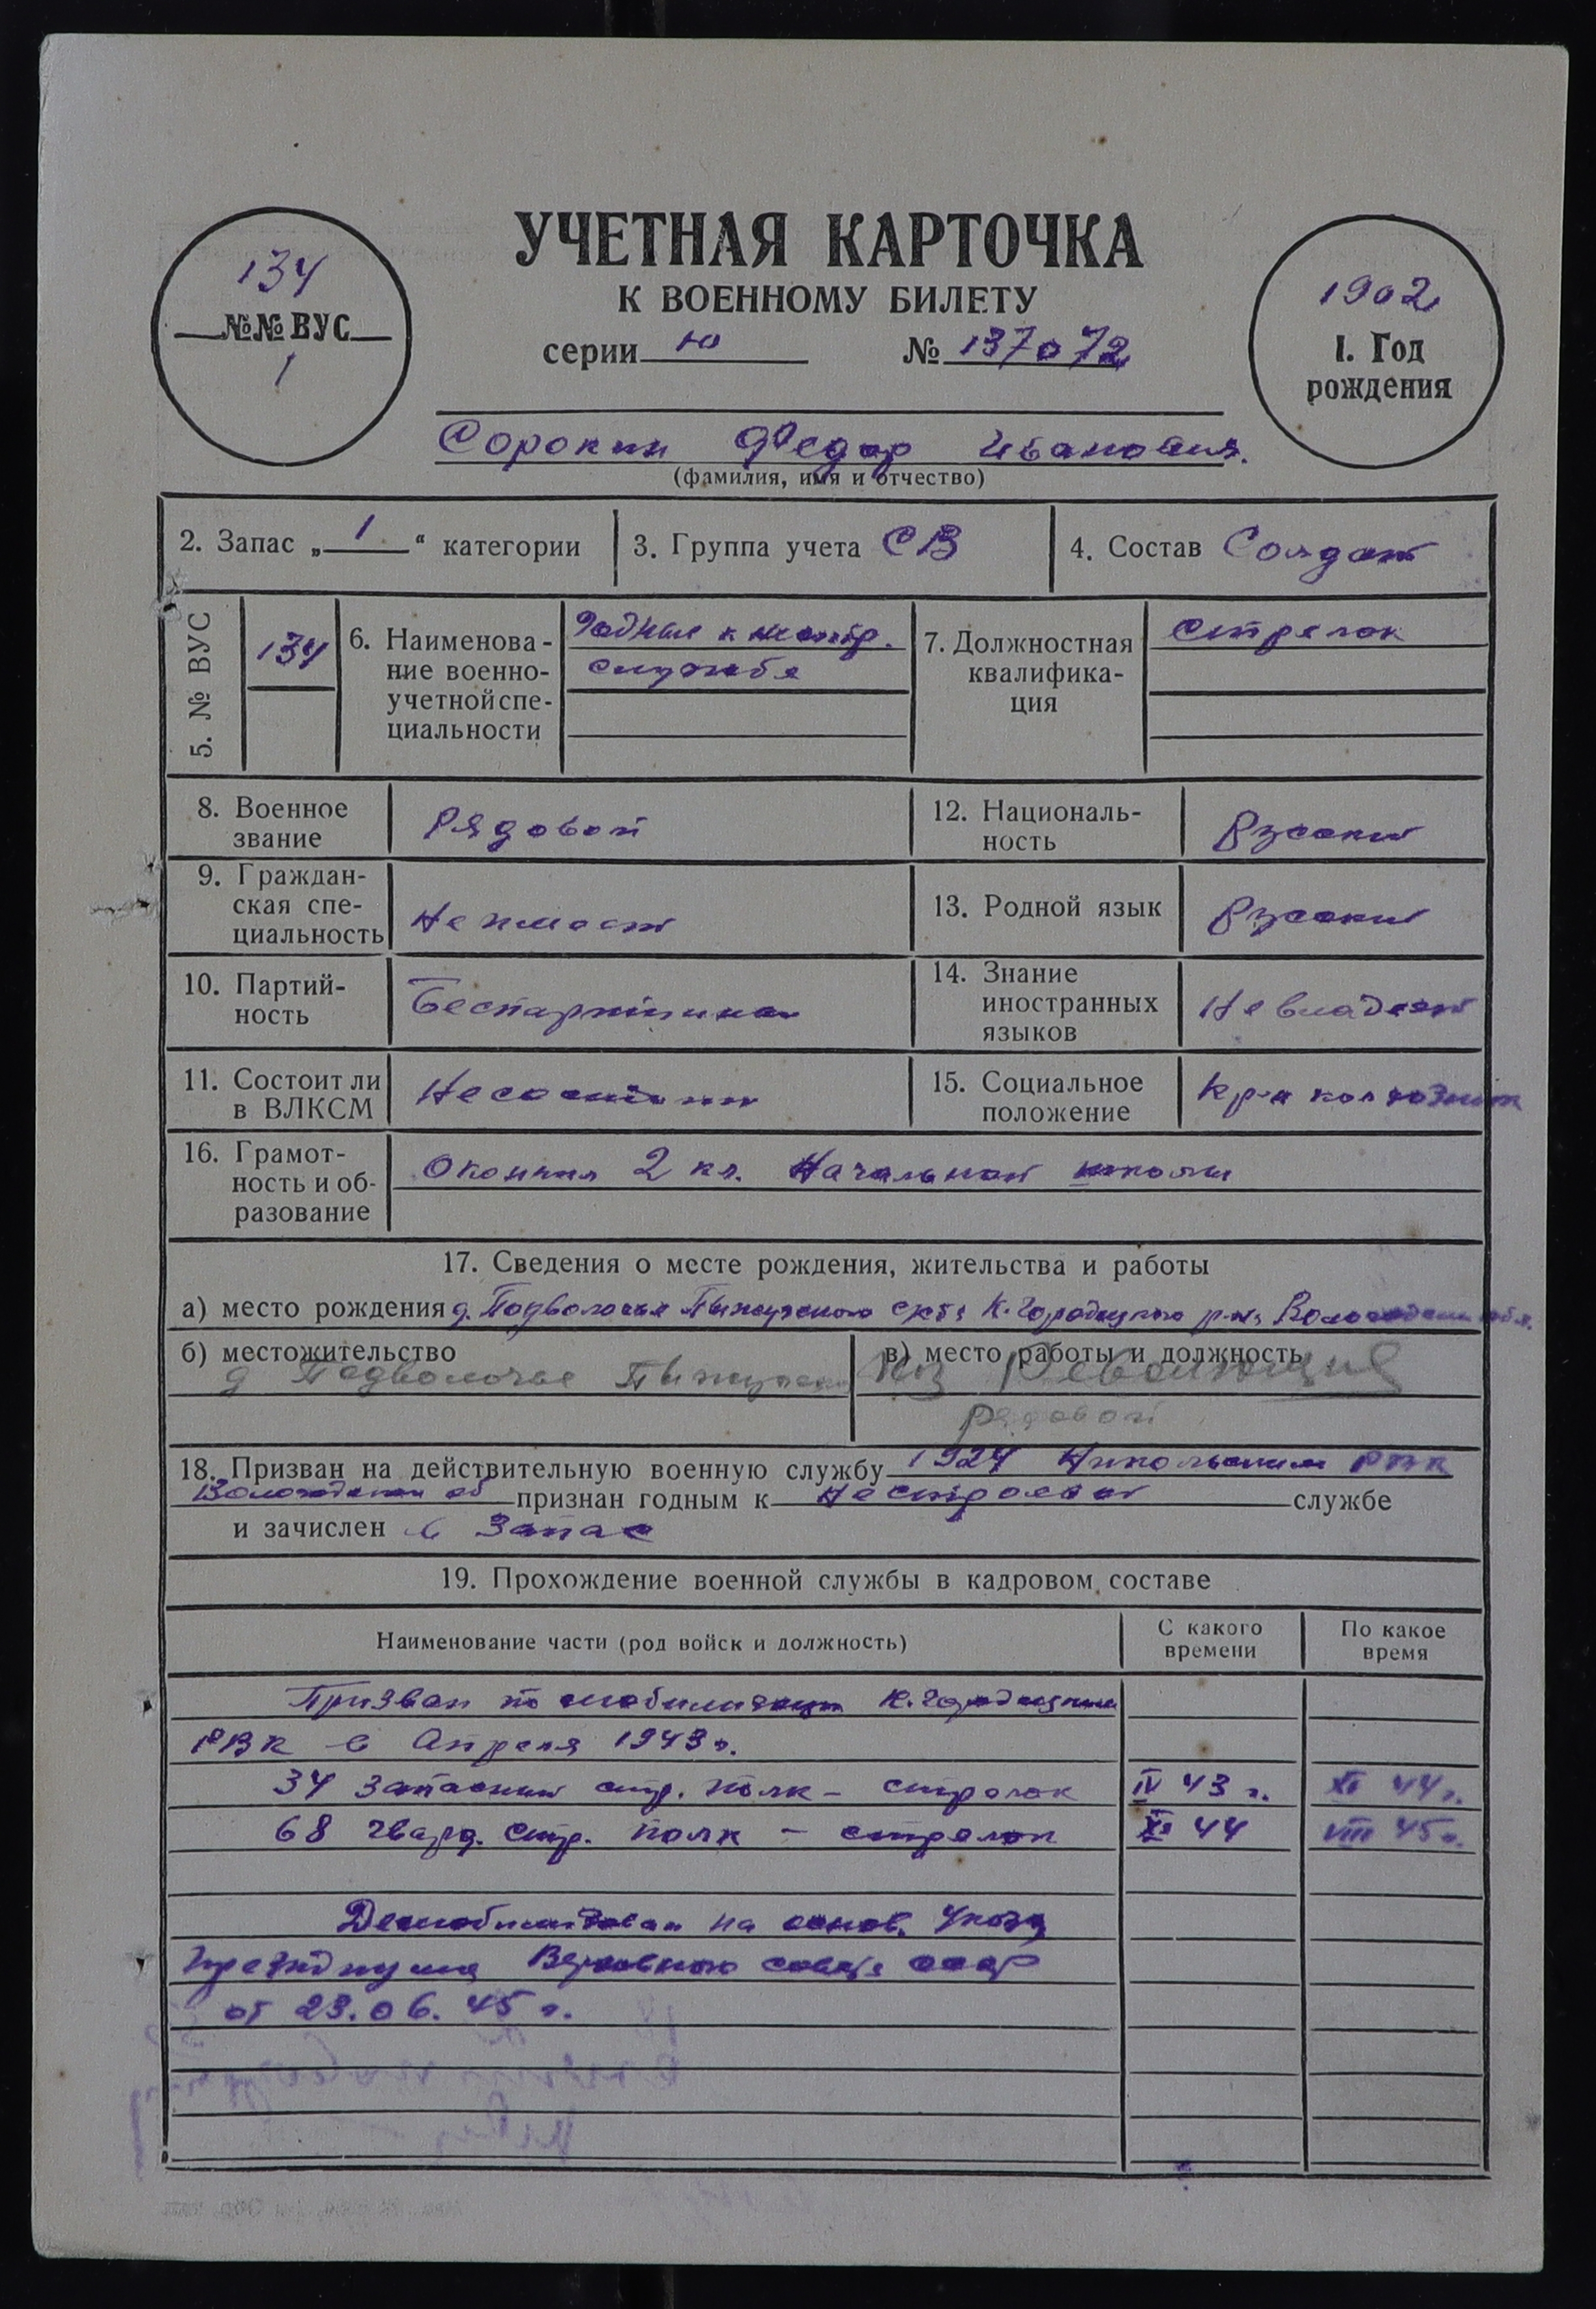 УЧЕТНАЯ КАРТОЧКА
К ВОЕННОМУ БИЛЕТУ
серии Ю № 137072
134
№№ ВУС
1
1902
1. Год
рождения
Сорокин Федор Иванович.
(фамилия, имя и отчество)
2. Запас „ 1 “ категории
3. Группа учета СВ
4. Состав Солдат
5. № ВУС
134
6. Наименова-
ние военно-
учетной спе-
циальности
Годные к нестр.
службе
7. Должностная
квалифика-
ция
стрелок
8. Военное
звание
Рядовой
12. Националь-
ность
Русский
9. Граждан-
ская спе-
циальность
Не имеет
13. Родной язык
Русский
10. Партий-
ность
Беспартийный
14. Знание
иностранных
языков
Не владеет
11. Состоит ли
в ВЛКСМ
Не состоит
15. Социальное
положение
Кр-н колхозник
16. Грамот-
ность и об-
разование
Окончил 2 кл. Начальной школы
17. Сведения о месте рождения, жительства и работы
а) место рождения д. Подволочье Пыжугского с/с К.Городецкого р-на Вологодской обл.
б) местожительство
д Подволочье Пыжугского
в) место работы и должность
К/з Революция
рядовой
18. Призван на действительную военную службу 1924 Никольским РВК
Вологодской об признан годным к нестроевой службе
и зачислен в Запас
19. Прохождение военной службы в кадровом составе
Наименование части (род войск и должность)
С какого
времени
По какое
время
Призван по мобилизации К.Городецким
РВК в Апреля 1943 г.
34 Запасный стр. полк - стрелок IV 43 г. XI 44 г.
68 гвард. стр. полк - стрелок XI 44 VIII 45 г.
Демобилизован на основ. Указа
Президиума Верховного совета СССР
от 23.06.45 г.